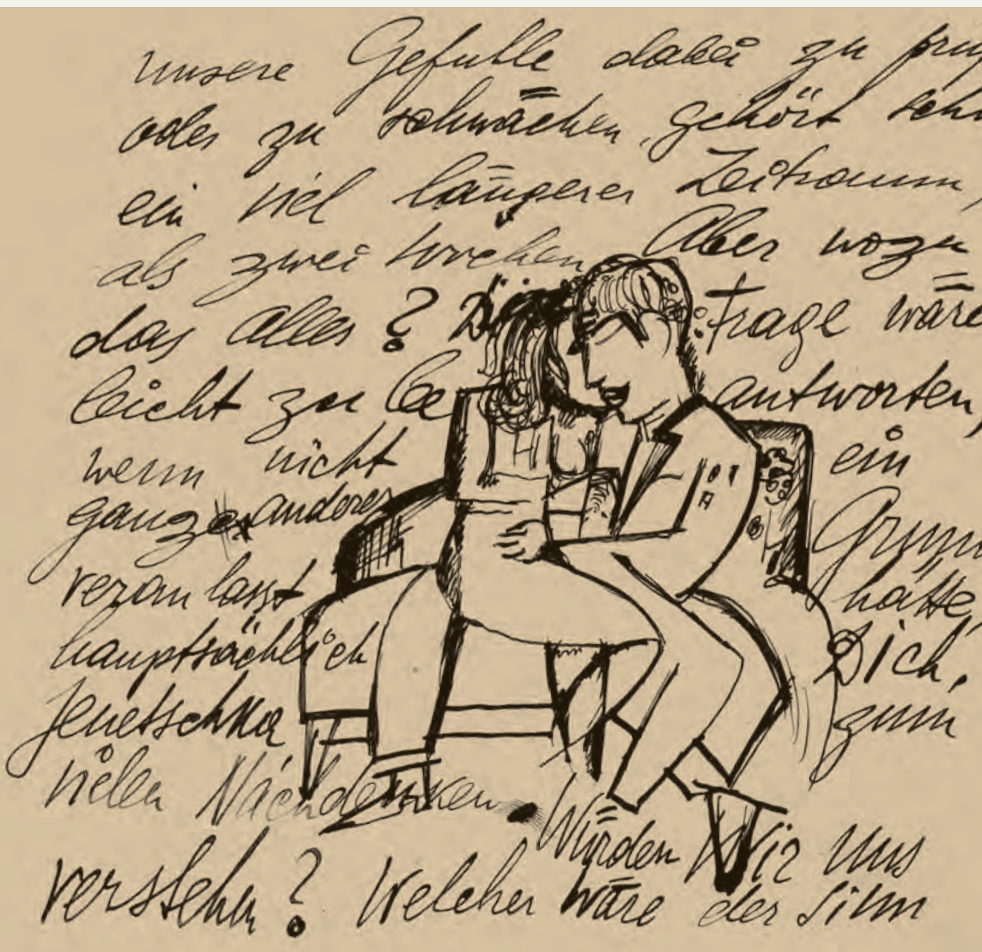 unsere Gefuhle dabei zu
oder zu schwächen, gehört
ein viel längerer Zeitraum,
als zwei Wochen. Aber wozu
das alles? Die Frage wäre
leicht zu be antworten,
wenn nicht ein
ganz anderer Grun
veranlasst hätte,
hauptsächlich Dich,
Jenetschka zum
vielen Nachdenken. Würden Wir Uns
verstehn? Welcher wäre der Sinn